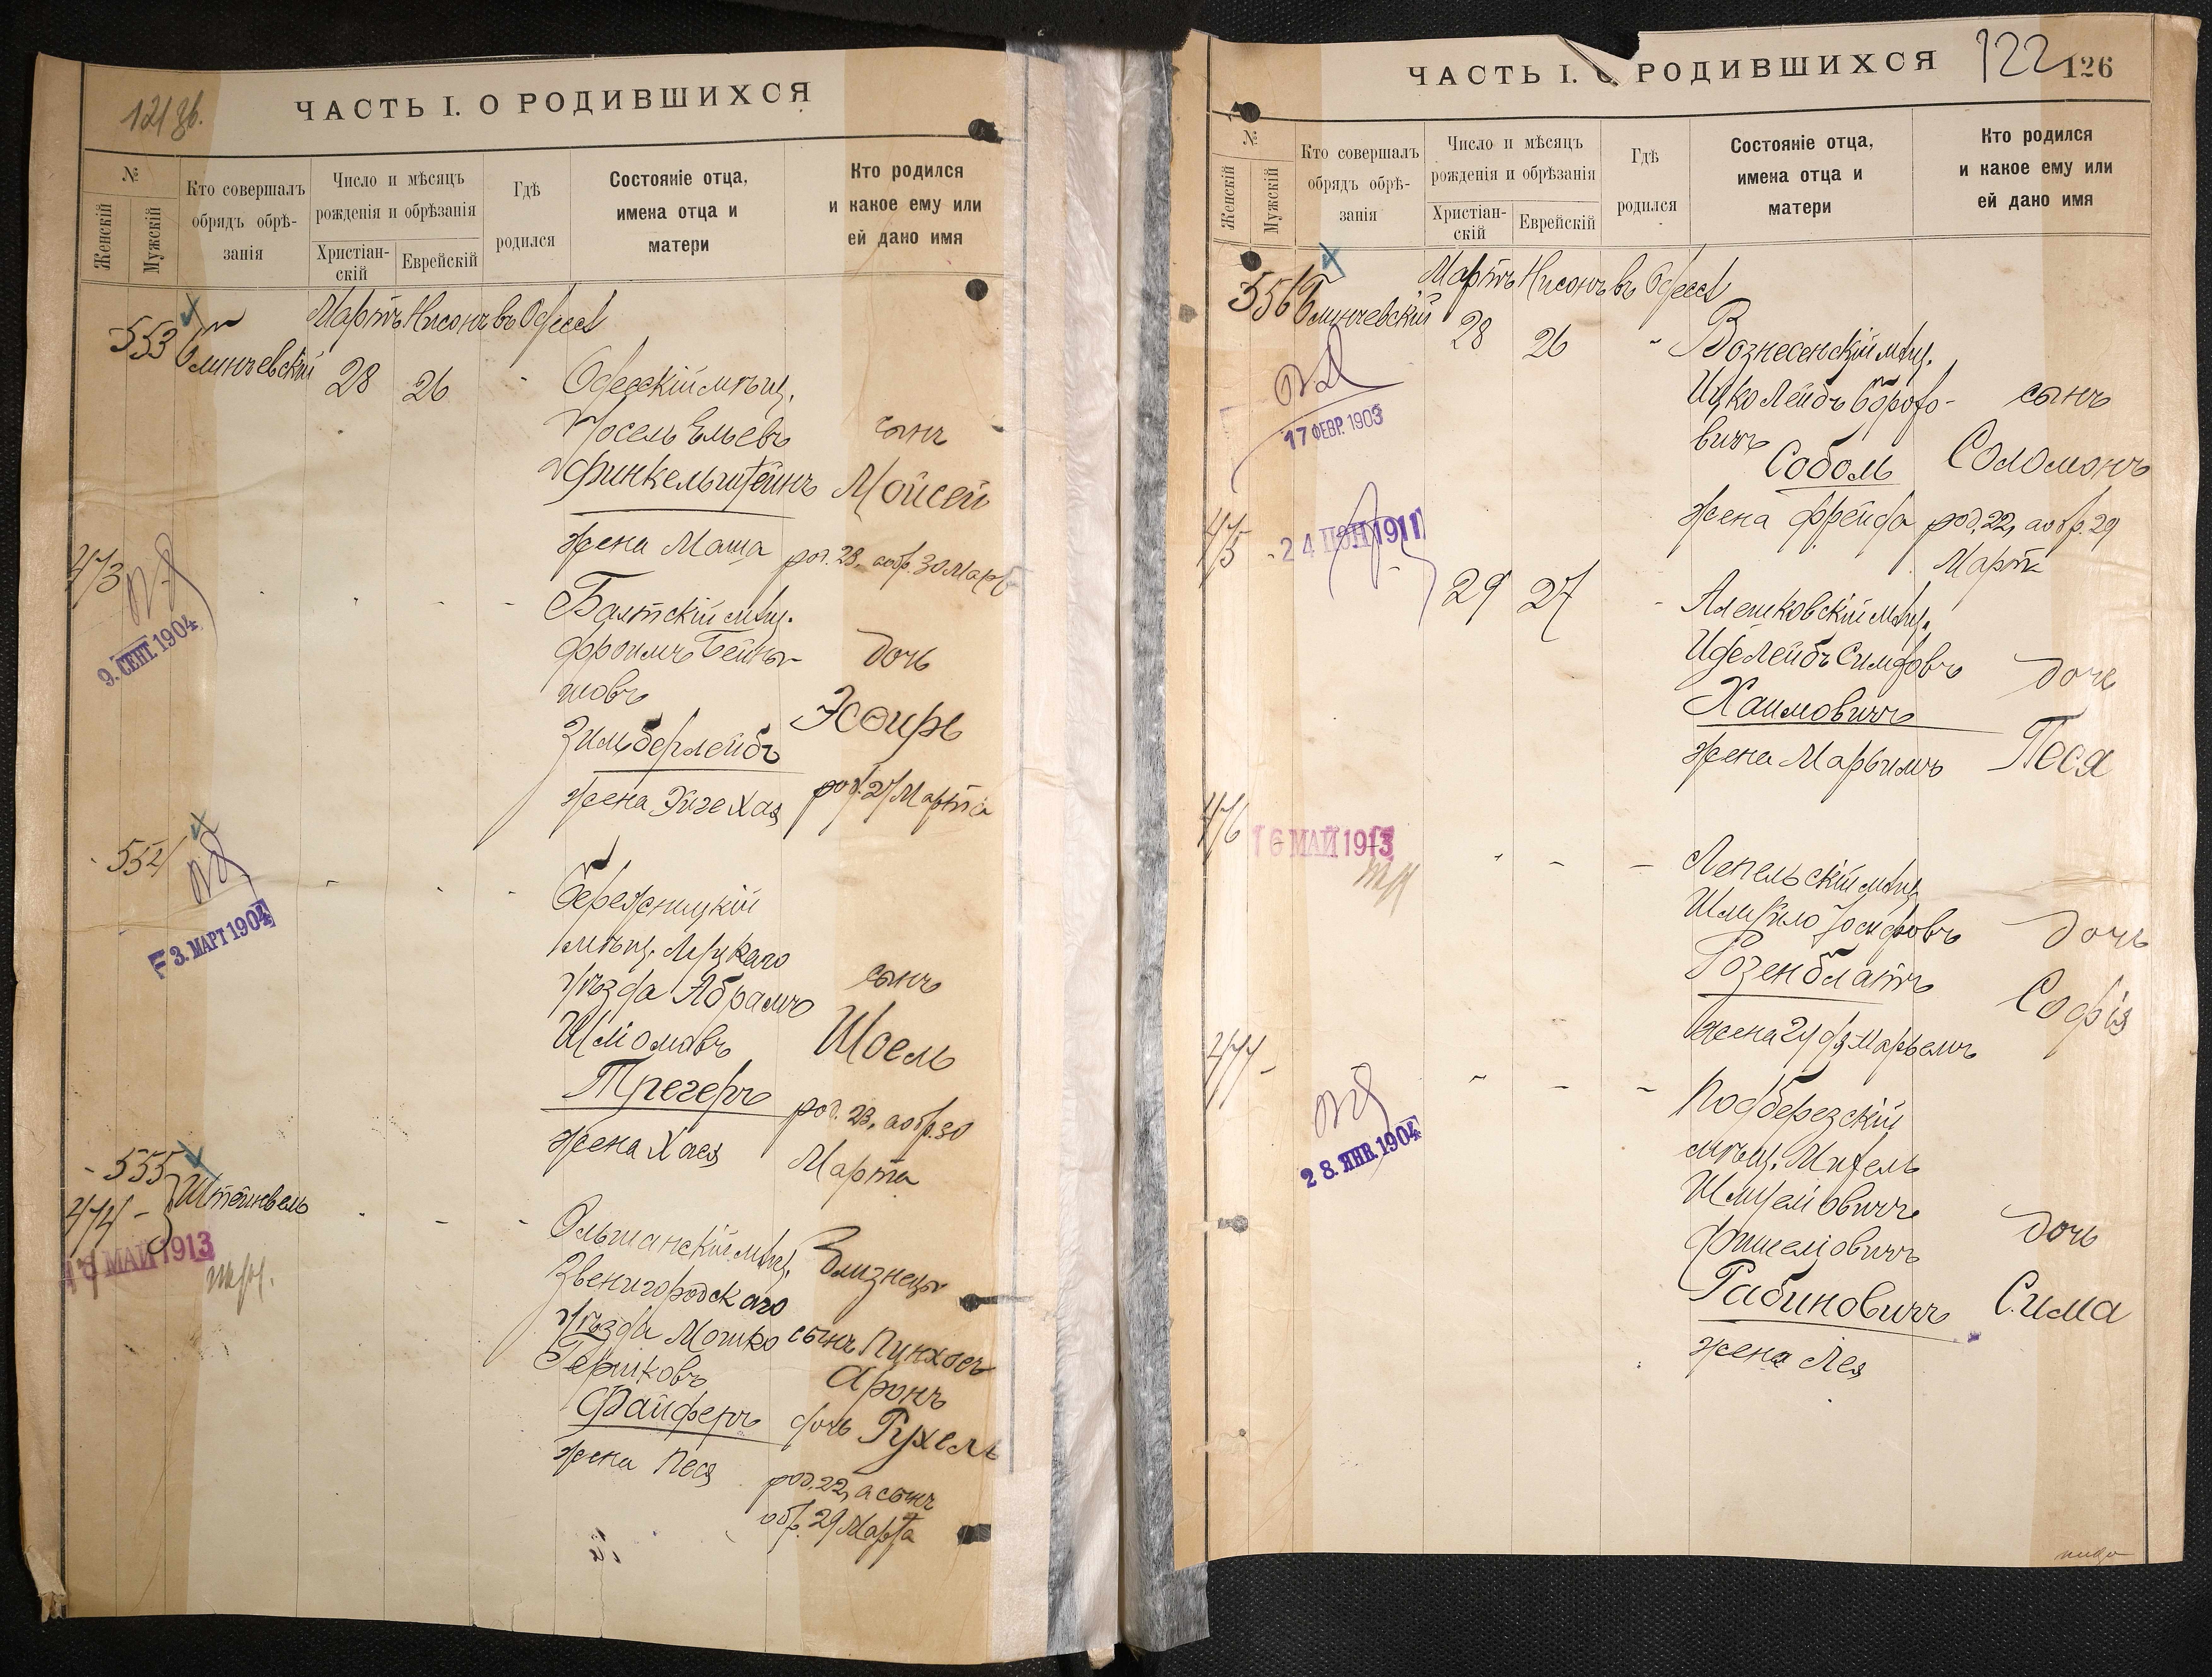 121 об.
ЧАСТЬ I. О РОДИВШИХСЯ
№
Женскій
Мужскій
Кто совершалъ
обрядъ обрѣ-
занія
Число и мѣсяцъ
рожденія и обрѣзанія
Христіан-
скій
Еврейскій
Гдѣ
родился
Состояніе отца,
имена отца и
матери
Кто родился
и какое ему или
ей дано имя
Мартъ Нисонъ въ Одессѣ
553
28 26
Одесскій мѣщ.
Іосель Ельевъ
сынъ
Финкельштейнъ Мойсей
жена Маша род. 28, а обр. 30 Марта
473
9. СЕНТ. 1904
Балтскій мѣщ.
Фроимъ Бейны-
шовъ
дочь
Эсѳирь
Зильберлейбъ
жена Эйге Хая род. 27 Марта
552
3. МАРТ 1904
Бережницкій
мѣщ. Луцкаго
уѣзда Абрамъ
сынъ
Шліомовъ
Шоель
Трегеръ
род. 23, а обр. 30
жена Хая
Марта
555
474
Штейнвель
16 МАЙ 1913
Ольшанскій мѣщ.
Близнецы
Звенигородскаго
уѣзда Мошко сынъ Пинхосъ
Гершковъ
Аронъ
Файферъ дочь Рухель
жена Песя
род. 22, а сынъ
обр. 29 Марта
ЧАСТЬ I. О РОДИВШИХСЯ
122
126
№
Женскій
Мужскій
Кто совершалъ
обрядъ обрѣ-
занія
Число и мѣсяцъ
рожденія и обрѣзанія
Христіан-
скій
Еврейскій
Гдѣ
родился
Состояніе отца,
имена отца и
матери
Кто родился
и какое ему или
ей дано имя
Мартъ Нисонъ въ Одессѣ
556
28 26
17 ФЕВР. 1903
Вознесенскій мѣщ.
Ицко Лейбъ Борохо-
вичъ
сынъ
Соболь
Соломонъ
жена Фрейда род. 22, а обр. 29
Марта
475
24 1911
29 27
Алешковскій мѣщ.
дочь
Хаимовичъ
Песя
жена Марьимъ
476
16 МАЙ 1913
Лепельскій мѣщ.
Шмуйло Іосифовъ
дочь
Розенблатъ
Софія
жена Марьемъ
477
28. ЯНВ. 1904
Подберезскій
мѣщ.
дочь
Фишелювичъ
Рабиновичъ
Сима
жена Лея